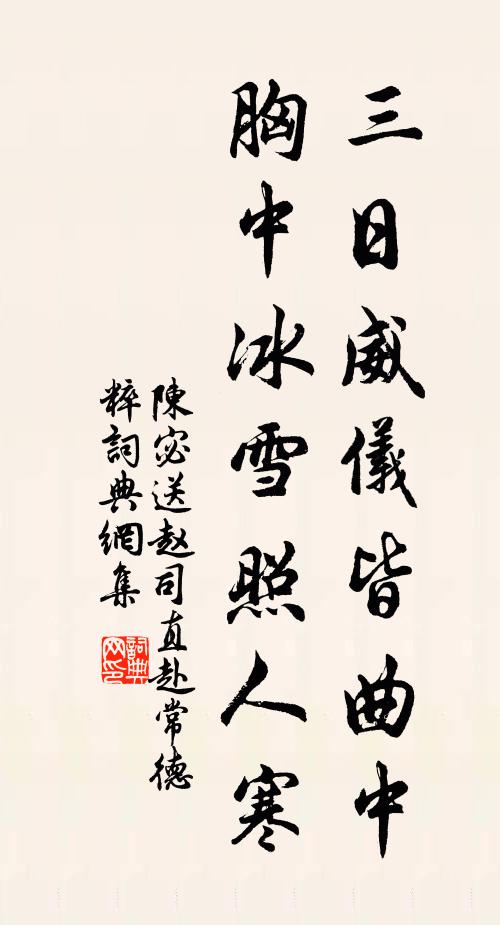 三日威儀皆曲中
胸中冰雪照人寒
陳宓送赵司直赴常德
粹詞典網集
詞典网印